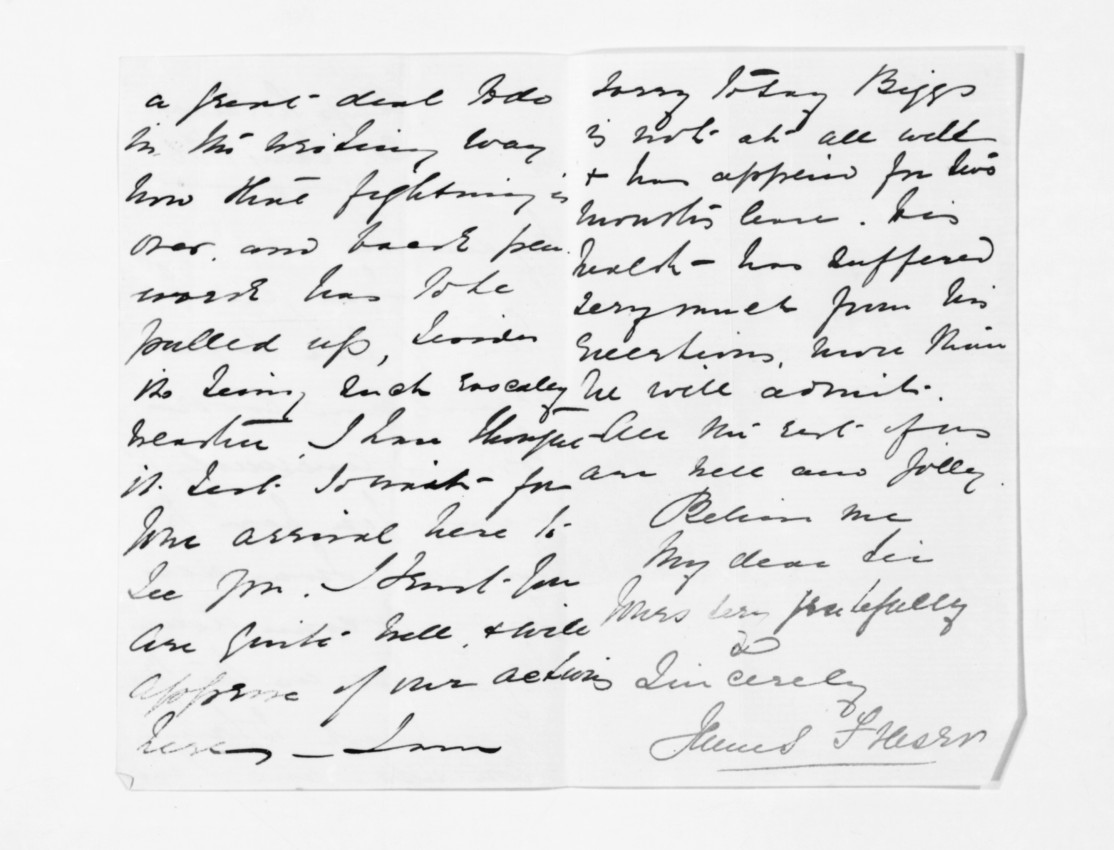 a great deal to do
in the writing way
now that fighting is
over, and back pen
work has to be
pulled up, besides
its being such rascaley
weather, I have thought
it best to wait for
your arrival here to
see you. I trust you
are quite well, & will
approve of our actions
here, — I am
sorry to say Biggs
is not at all well
& has applied for two
months leave. His
health has suffered
very much from his
exertions, more than
he will admit.
All the rest of us
are well and jolly.
Believe me
My dear Sir
Yours very gratefully
&
Sincerely
James